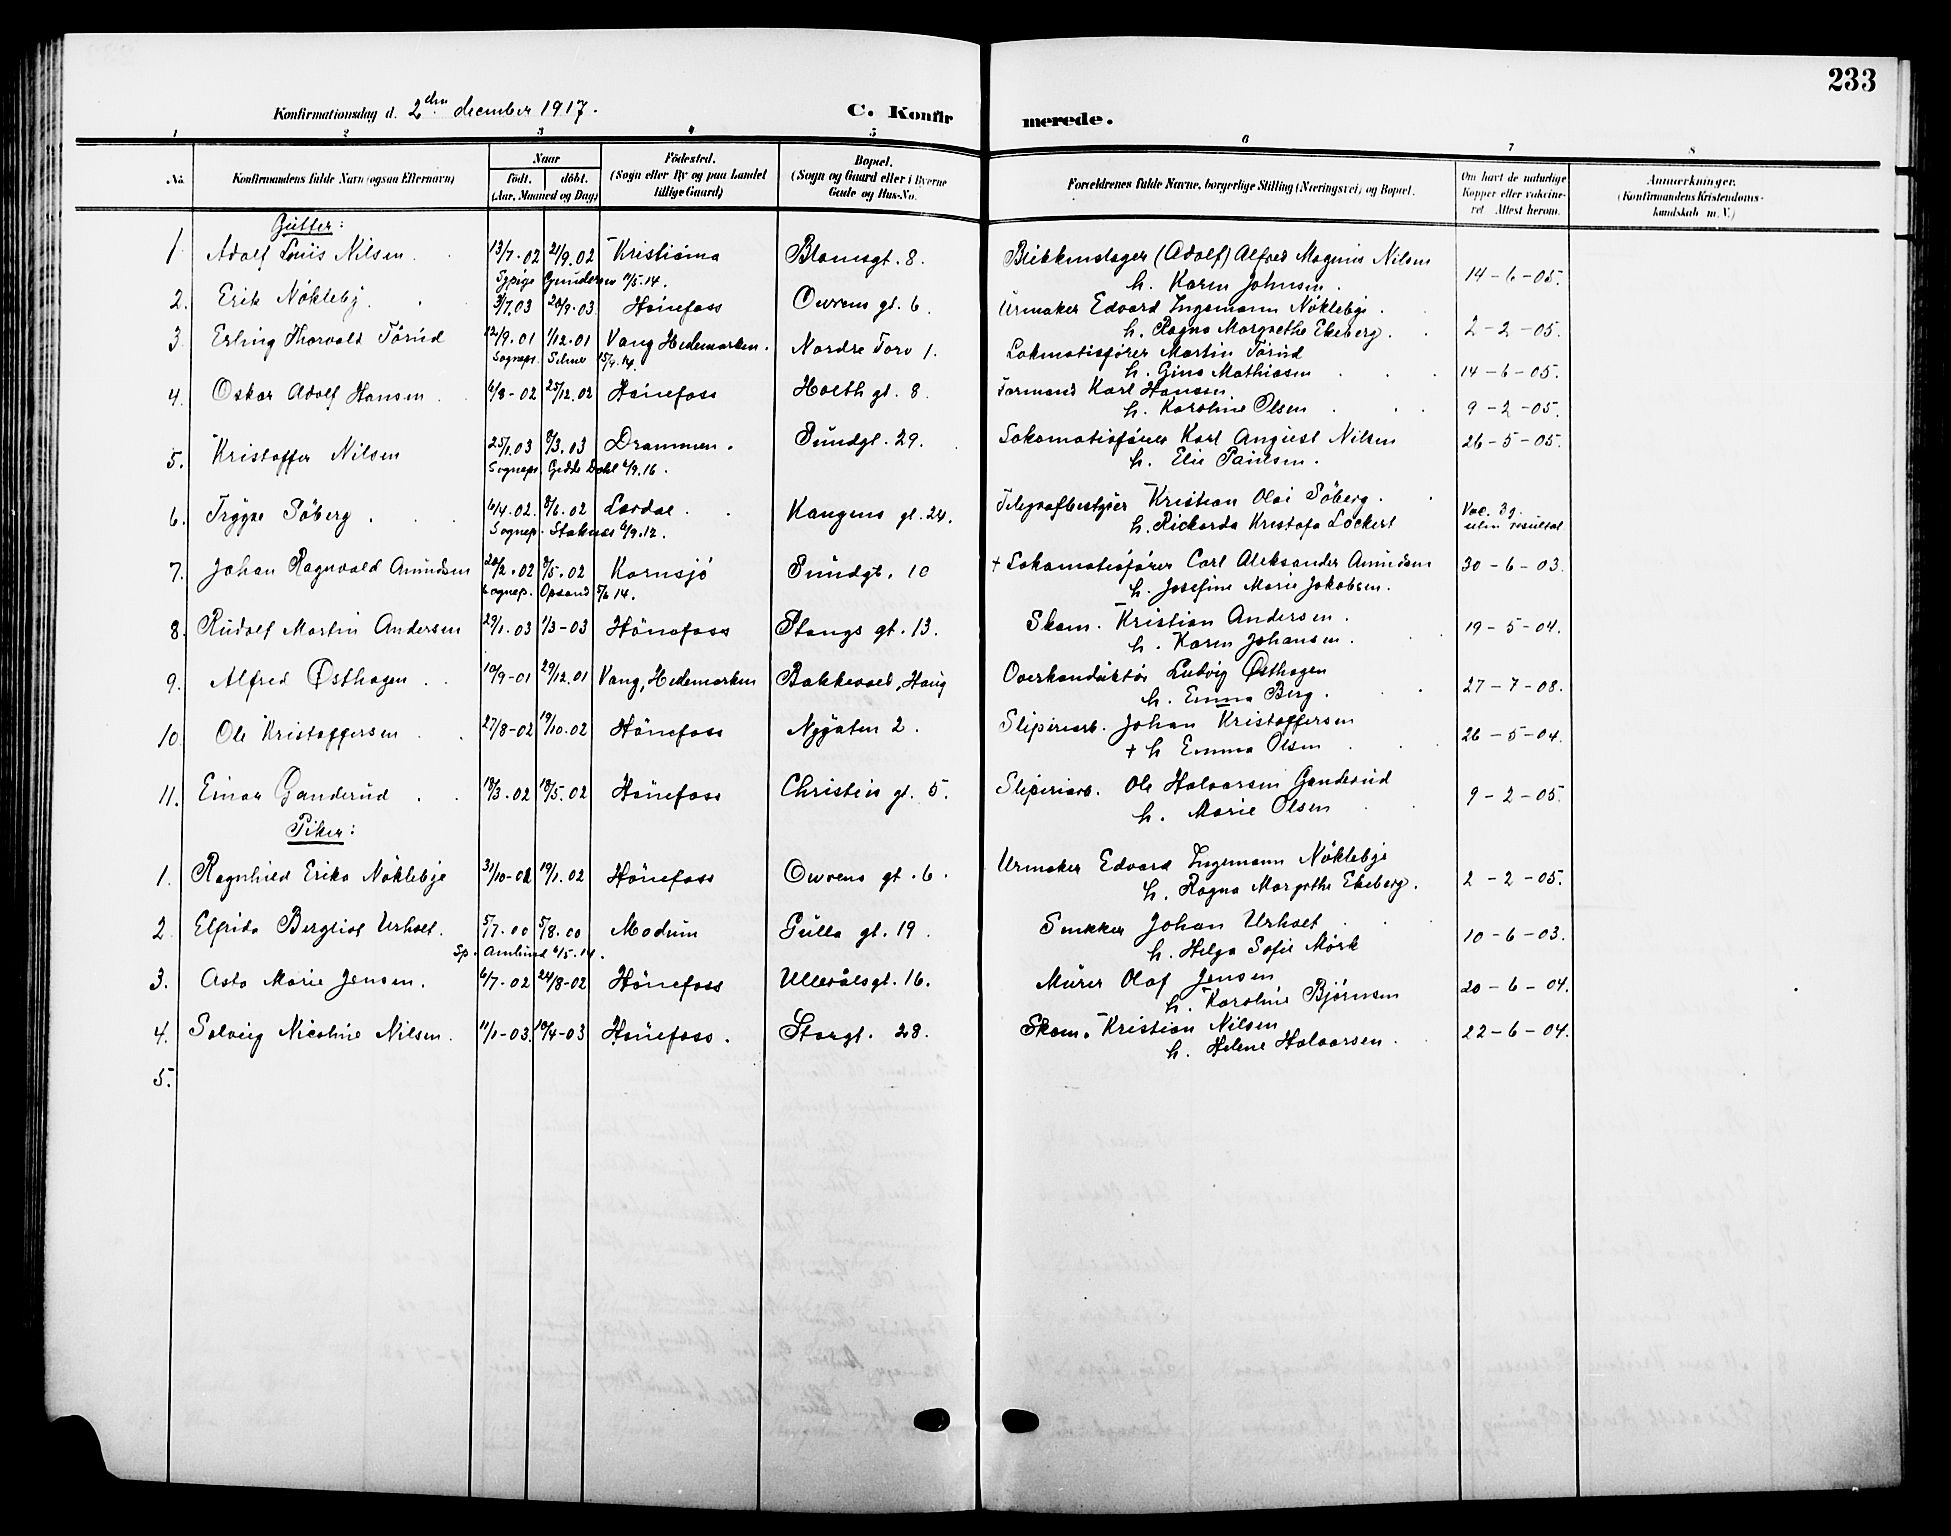 233
Konfirmationsdag d. 2den december 1917. C. Konfirmerede.
1 2 3 4 5 6 7 8
No. Konfirmandens fulde Navn (ogsaa Efternavn) Naar født. døbt. (Aar, Maaned og Dag) Fødested. (Sogn eller By og paa Landet tillige Gaard) Bopæl. (Sogn og Gaard eller i Byerne Gade og Hus-No. Forældrenes fulde Navne, borgerlige Stilling (Næringsvei) og Bopæl. Om havt de naturlige Kopper eller vakcineret. Attest herom. Anmerkninger. (Konfirmandens Kristendomskundskab m. V.)
Gutter:
1 Adolf Louis Nilsen. 13/7-02 21/9.02 Kristiania Blomsgt. 8. Blikkenslager (Adolf) Alfred Magnus Nilsen
Gundersen 11/5.14. h. Karen Johnsen. 14-6-05.
2. Erik Nöklebj. 3/7.03 20/9-03 Hönefoss Owrens gt. 6. Urmaker Edvard Ingemann Nöklebje.
h. Ragna Margrethe Ekeberg. 2-2-05.
3. Erling Thorvald Törud 12/9.01 1/12.01 Vang Hedemarken. Nordre Torv 1. Lokmotivfører Martin Törud
Sognepr. Selmer 15/9.14. h. Gina Mathiasen 14-6-05.
4. Oskar Adolf Hansen. 6/8-02 25/12.02 Hönefoss Holth gt. 8. Formand Karl Hansen.
h. Karoline Olsen 9-2-05.
5. Kristoffer Nilsen 25/1.03 8/3.03 Drammen. Sundgt. 29. Lokomotivfører Karl August Nilsen 26-5-05.
Sognepr. Dahl 6/9.16. h. Elise Paulsen.
6. Trygve Söberg. 6/4.02. 8/6.02 Lardal. Kongens gt. 24. Telegrafbestyrer Kristian Olai Söberg. Vac. 3 g.
Sognep. 6/9.12. h. Rickarda Kristofa Lockert uten resultat
7. Johan Ragnvald Amundsen 20/2.02 8/5.02 Kornsjö Sundgt. 10 + Lokomotivfører Carl Aleksander Amundsen 30-6-03.
Sognep. Opsand 5/6 14. h. Josefine Marie Jakobsen.
8. Rudolf Martin Andersen 29/1.03 1/3-03 Hönefoss Stangs gt. 13. Skom. Kristian Andersen.
h. Karen Johansen. 19-5-04.
9. Alfred Østhagen. 10/9-01 29/12.01 Vang, Hedemarken Bakkevold, Haug Overkonduktør Ludvig Østhagen
h. Emma Berg. 27-7-08.
10. Ole Kristoffersen 27/8-02 19/10.02 Hönefoss Nygaten 2. Sliperiarb. Johan Kristoffersen
+ h Emma Olsen 26-5-04.
11. Einar Ganderud 18/3.02 18/5.02 Hönefoss Christies gt. 5. Sliperiarb. Ole Halvorsen Ganderud
h. Marie Olsen 9-2-05.
Piker:
1. Ragnhild Erika Nöklebje 31/10-01 19/1.02 Hönefoss Owrens gt. 6. Urmaker Edvard Ingemann Nöklebje
h. Ragna Margrethe Ekeberg. 2-2-05.
2. Elfrida Bergliot Urholt. 5/7.00 5/8.00 Modum Gulla gt. 19. Snekker Johan Urholt
Sp. Amlund 6/5.14. h. Helga Sofie Mørk 10-6-03.
3. Asta Marie Jensen. 6/7-02 24/8-02 Hönefoss Ullevålsgt. 16. Murer Olaf Jensen
h. Karoline Bjørnsen 20-6-04.
4. Solveig Nicoline Nilsen. 11/1-03. 10/4-03 Hönefoss. Storgt. 28. Skom. Kristian Nilsen
h. Helene Halvorsen. 22-6-04.
5.